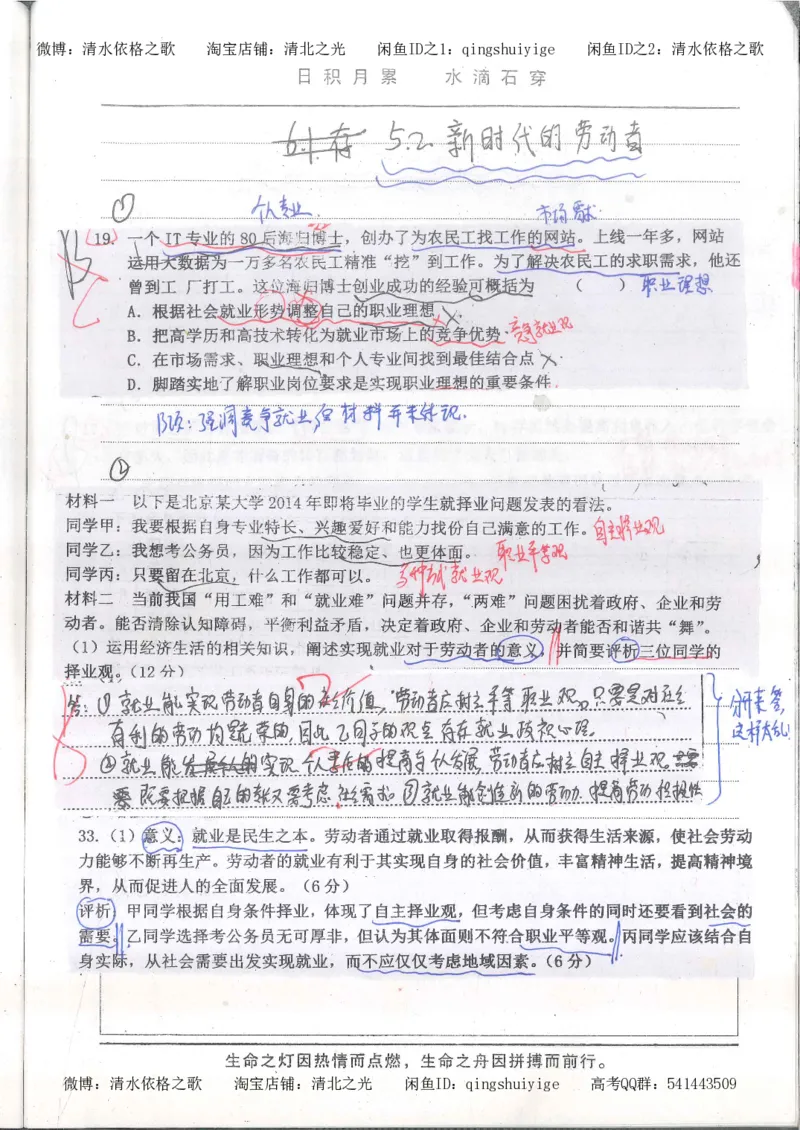 微博：清水依格之歌 淘宝店铺：清北之光 闲鱼ID之1：qingshuiyige 闲鱼ID之2：清水依格之歌
日积月累 水滴石穿
6.1.存 5.2.新时代的劳动者
①
个人专业. 市场需求.
19. 一个IT专业的80后海归博士，创办了为农民工找工作的网站。上线一年多，网站
运用大数据为一万多名农民工精准“挖”到工作。为了解决农民工的求职需求，他还
曾到工 厂打工。这位海归博士创业成功的经验可概括为 （ ） 职业理想
A. 根据社会就业形势调整自己的职业理想
B. 把高学历和高技术转化为就业市场上的竞争优势. 竞争就业观
C. 在市场需求、职业理想和个人专业间找到最佳结合点
D. 脚踏实地了解职业岗位要求是实现职业理想的重要条件.
B项：强调竞争就业但材料并未体现.
②
材料一 以下是北京某大学2014年即将毕业的学生就择业问题发表的看法。
同学甲：我要根据自身专业特长、兴趣爱好和能力找份自己满意的工作。自主择业观
同学乙：我想考公务员，因为工作比较稳定、也更体面。 职业平等观
同学丙：只要留在北京，什么工作都可以。 多种方式就业观
材料二 当前我国“用工难”和“就业难”问题并存，“两难”问题困扰着政府、企业和劳
动者。能否清除认知障碍，平衡利益矛盾，决定着政府、企业和劳动者能否和谐共“舞”。
（1）运用经济生活的相关知识，阐述实现就业对于劳动者的意义，并简要评析三位同学的
择业观。（12分）
答：①就业能实现劳动者自身的价值，劳动者应树立平等职业观。只要是对社会
有利的劳动均是光荣的，因此乙同学的观点存在就业歧视心理。
②就业能实现个人素质的提高与个人发展，劳动者应树立自主择业观。
要既要根据自己的 又要考虑社会需求。③就业能创造新的劳动力，提高劳动积极性
分开来答，
这样太乱！
33.（1）意义：就业是民生之本。劳动者通过就业取得报酬，从而获得生活来源，使社会劳动
力能够不断再生产。劳动者的就业有利于其实现自身的社会价值，丰富精神生活，提高精神境
界，从而促进人的全面发展。（6分）
评析：甲同学根据自身条件择业，体现了自主择业观，但考虑自身条件的同时还要看到社会的
需要。乙同学选择考公务员无可厚非，但认为其体面则不符合职业平等观。丙同学应该结合自
身实际，从社会需要出发实现就业，而不应仅仅考虑地域因素。（6分）
生命之灯因热情而点燃，生命之舟因拼搏而前行。
微博：清水依格之歌 淘宝店铺：清北之光 闲鱼ID：qingshuiyige 高考QQ群：541443509